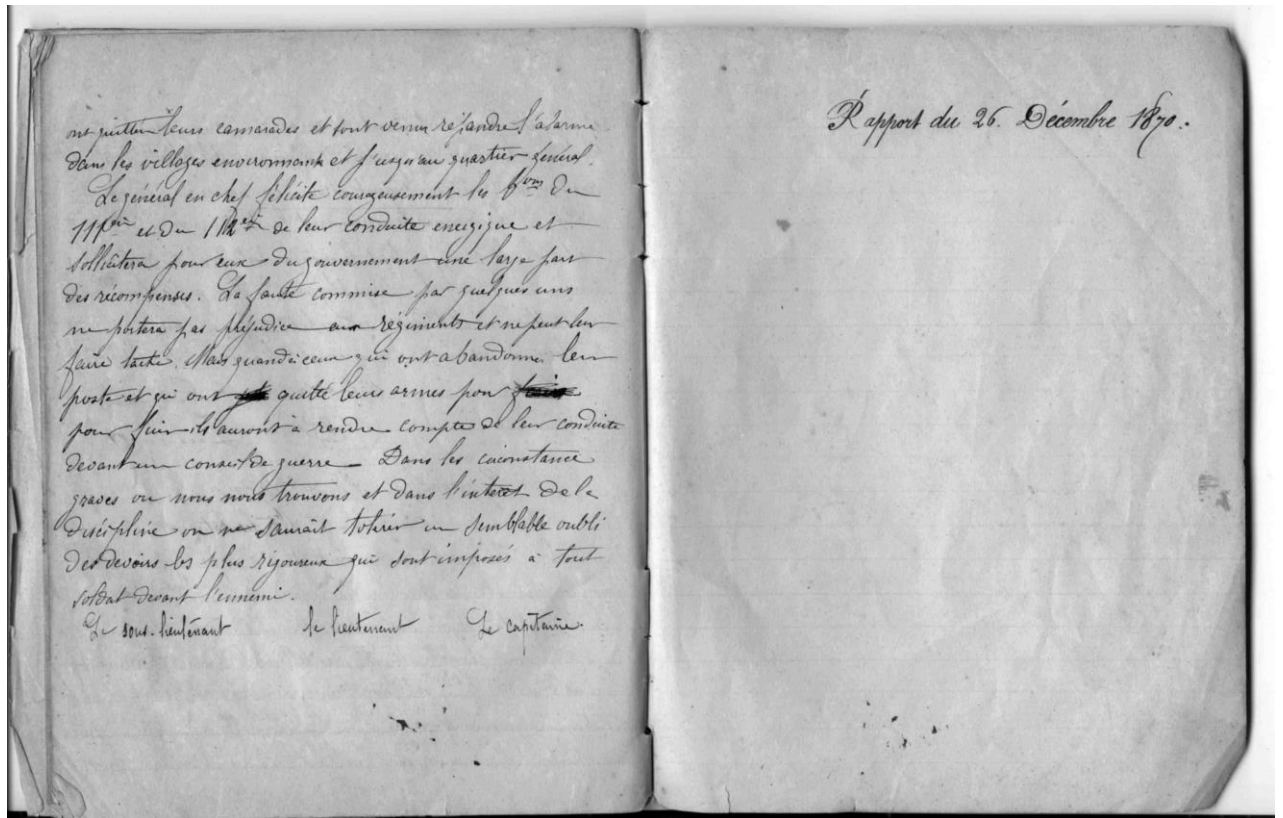 ont quitter leurs camarades et sont venus répandre l'alarme
dans les villages environnants et jusqu'au quartier général.
Le général en chef félicite courageusement les du
111e et du 112e de leur conduite energique et
sollicitera pour eux du gouvernement une large part
des récompenses. La faute commise par quelques uns
ne portera pas préjudice aux régiments et ne peut leur
faire tache. Mais quand à ceux qui ont abandonné leur
poste et qui ont quitté leurs armes pour
pour fuir ils auront à rendre compte de leur conduite
devant un conseil de guerre Dans les circonstance
graves ou nous nous trouvons et dans l'intéret de la
discipline on ne saurait tolérer un semblable oubli
des devoirs les plus rigoureux qui sont imposés à tout
soldat devant l'ennemi.
Le sous-lieutenant le lieutenant Le capitaine.
Rapport du 26. Décembre 1870.